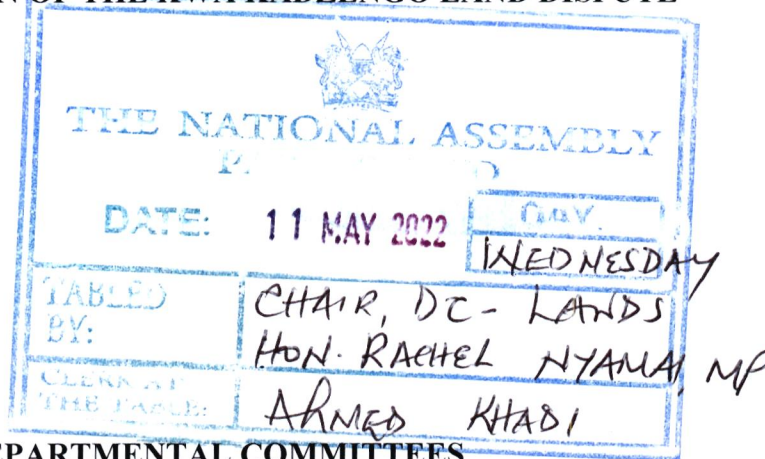 N OF THE KWA KADZENGO LAND DISPUTE
THE NATIONAL ASSEMBLY
DATE: 11 MAY 2022 DAY.
WEDNESDAY
TABLED BY: CHAIR, DC - LANDS
HON. RACHEL NYAMAI, MP
CLERK AT THE TABLE: AHMED KHADI
EPARTMENTAL COMMITTEES